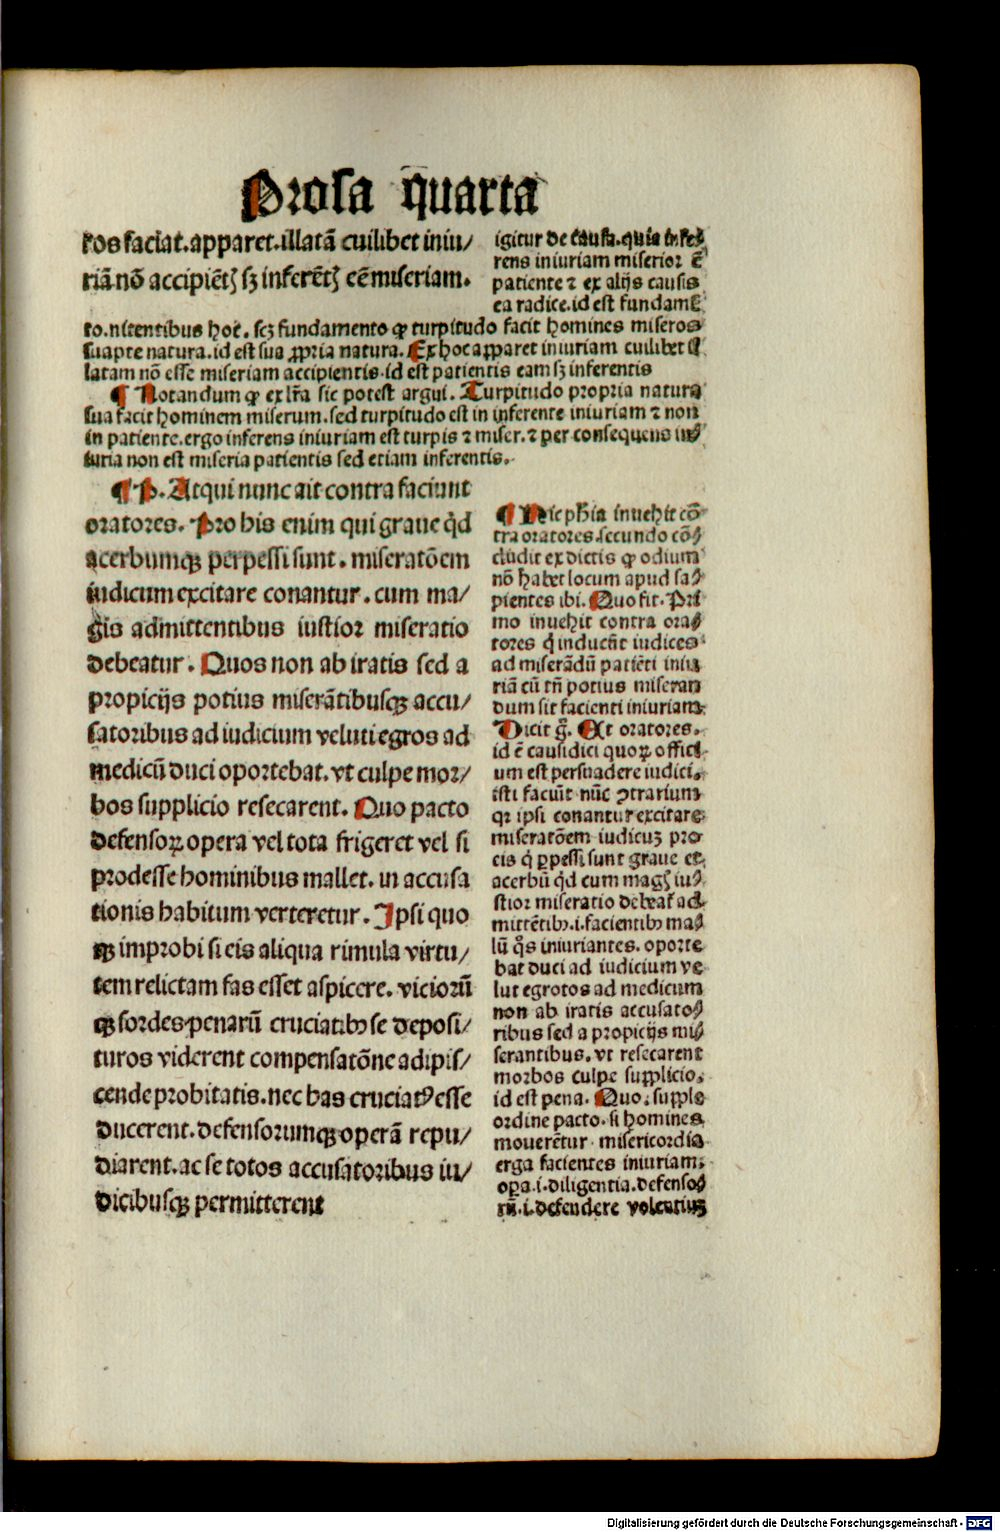 Prosa q̄uarta
ros faciat. apparet. illatā cuilibet iniu/
riā nō accipiētꝭ sꝫ inferētꝭ eē miseriam.
igitur de causa. quia infe⸗
rens iniuriam miserior ē
patiente ⁊ ex alijs causis
ea radice. id est fundamē
to. nitentibus hoc̄. scꝫ fundamento ꝙ turpitudo facit homines miseros
suapte natura. id est sua ꝓpria natura. Ex hoc apparet iniuriam cuilibet il
latam nō esse miseriam accipientis. id est patientis eam sꝫ inferentis
¶ Notandum ꝙ ex lr̄a sic potest argui. Turpitudo propria natura
sua facit hominem miserum. sed turpitudo est in inferente iniuriam ⁊ non
in patiente. ergo inferens iniuriam est turpis ⁊ miser. ⁊ per consequens in⸗
iuria non est miseria patientis sed etiam inferentis.
¶ P. Atqui nunc ait contra faciunt
oratores. Pro his enim qui graue qd̄
acerbumqꝫ perpessi sunt. miseratōem
iudicum excitare conantur. cum ma/
gis admittentibus iustior miseratio
debeatur. Quos non ab iratis sed a
propicijs potius miserātibusqꝫ accu/
satoribus ad iudicium veluti egros ad
medicū duci oportebat. vt culpe mor/
bos supplicio resecarent. Quo pacto
defensoꝝ opera vel tota frigeret vel si
prodesse hominibus mallet. in accusa
tionis habitum verteretur. Ipsi quo
qꝫ improbi si eis aliqua rimula virtu/
tem relictam fas esset aspicere. viciorū
qꝫ sordes penarū cruciatibꝰ se deposi/
turos viderent compensatōne adipis/
cende probitatis. nec has cruciatꝰ esse
ducerent. defensorumqꝫ operā repu/
diarent. ac se totos accusatoribus iu/
dicibusqꝫ permitterent
¶ Hic ph̄ia inuehit cō
tra oratores. secundo cō⸗
cludit ex dictis ꝙ odium
nō habet locum apud sa⸗
pientes ibi. Quo fit. Pri
mo inuehit contra ora⸗
tores q̇ inducūt iudices
ad miserādū patiēti iniu
riā cū tn̄ potius miseran
dum sit facienti iniuriam.
Dicit g̊. At oratores.
id ē causidici quoꝝ offici
um est persuadere iudici.
isti faciūt nūc ꝯtrarium
qꝛ ipsi conantur excitare
miseratōem iudicuꝫ pro
eis q̇ ꝑpessi sunt graue et
acerbū qd̄ cum magꝭ iu⸗
stior miseratio debeat̄ ad
mittētibꝰ. i. facientibꝰ ma⸗
lū q̊s iniuriantes. oporte
bat duci ad iudicium ve
lut egrotos ad medicum
non ab iratis accusato⸗
ribus sed a propicijs mi⸗
serantibus. vt resecarent
morbos culpe supplicio.
id est pena. Quo. supple
ordine pacto. si homines
mouerētur misericordia
erga facientes iniuriam.
oꝑa. i. diligentia. defenso⸗
rū. i. defendere volentiuꝫ
Digitalisierung gefördert durch die Deutsche Forschungsgemeinschaft - DFG